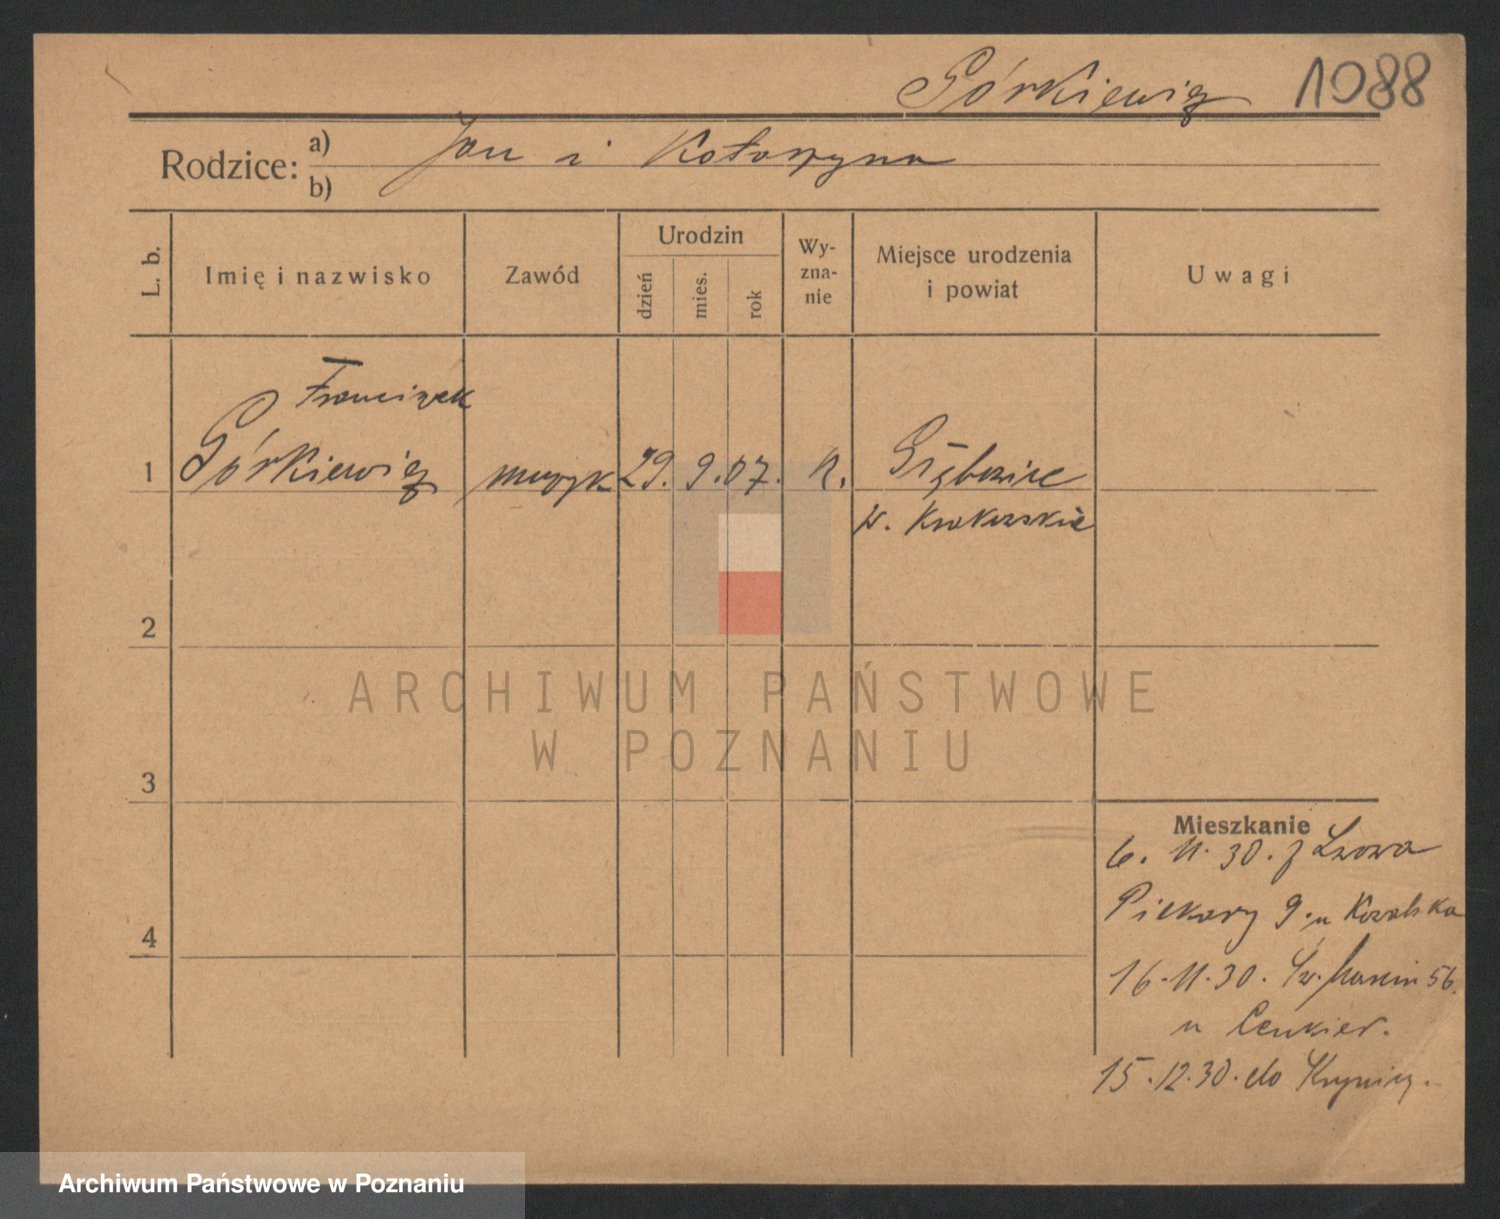 Górkiewicz 1988
Rodzice: a) Jan i Katarzyna
b)
L. b.
Imię i nazwisko
Zawód
Urodzin
dzień
mies.
rok
Wy-
zna-
nie
Miejsce urodzenia
i powiat
Uwagi
Franciszek
1 Górkiewicz muzyk 29. 9. 07. k. Głębowice
w. Krakowskie
2
3
4
ARCHIWUM PAŃSTWOWE
W POZNANIU
Mieszkanie
6. 11. 30. z Lwowa
Piekary 9. u Kowalska
16. 11. 30. Św. Marcin 56.
u Cenkier.
15. 12. 30. do Krynicy.
Archiwum Państwowe w Poznaniu